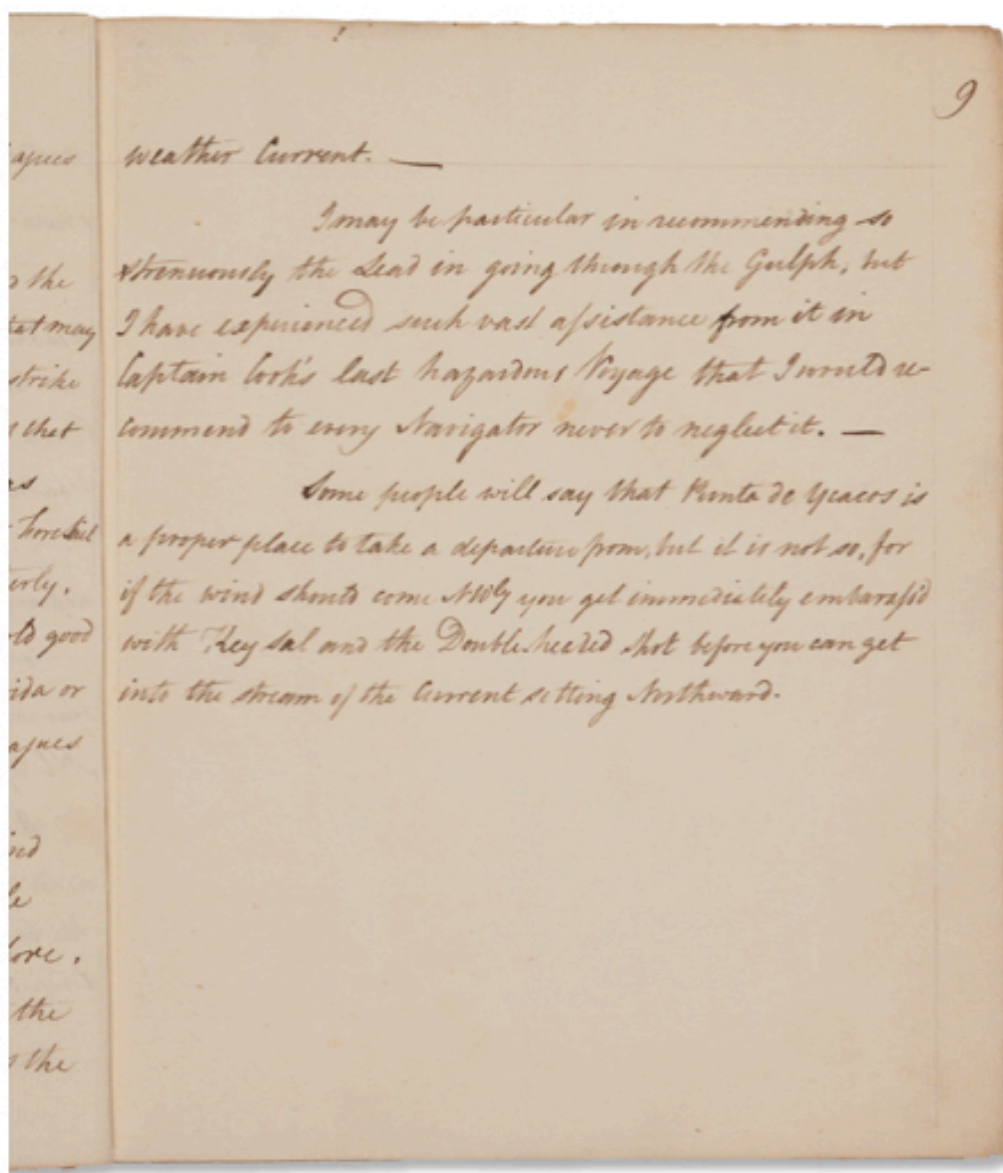 9
weather Current. —
I may be particular in recommending so
strenuously the Lead in going through the Gulph, but
I have experienced such vast assistance from it in
Captain Cook's last hazardous Voyage that I would re-
commend to every Navigator never to neglect it. —
Some people will say that Punta de Ycacos is
a proper place to take a departure from, but it is not so, for
if the wind should come NWly you get immediately embarass'd
with Key Sal and the Double headed shot before you can get
into the stream of the Current setting Northward.
agues
the
that may
strike
that
as
erly.
old good
ida or
agues
le
ore.
the
the